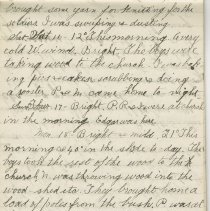 brought some yarn for knitting for the
soldiers I was sweeping & dusting
Sat 16 - 12° this morning & very
cold W. winds. Bright. The boys were
taking wood to the church I was bak
ing pies & cakes scrubbing & doing
a roaster R & M came home to night
Sun 17 - Bright P. R & were at church
in the morning Edgar was here
Mon. 18 Bright & mild 21° this
morning & 40 in the shade to day. The
boys took the rest of the wood to the
church, N. was throwing wood into the
wood shed etc. They brought home a
load of poles from the bush. P. was at